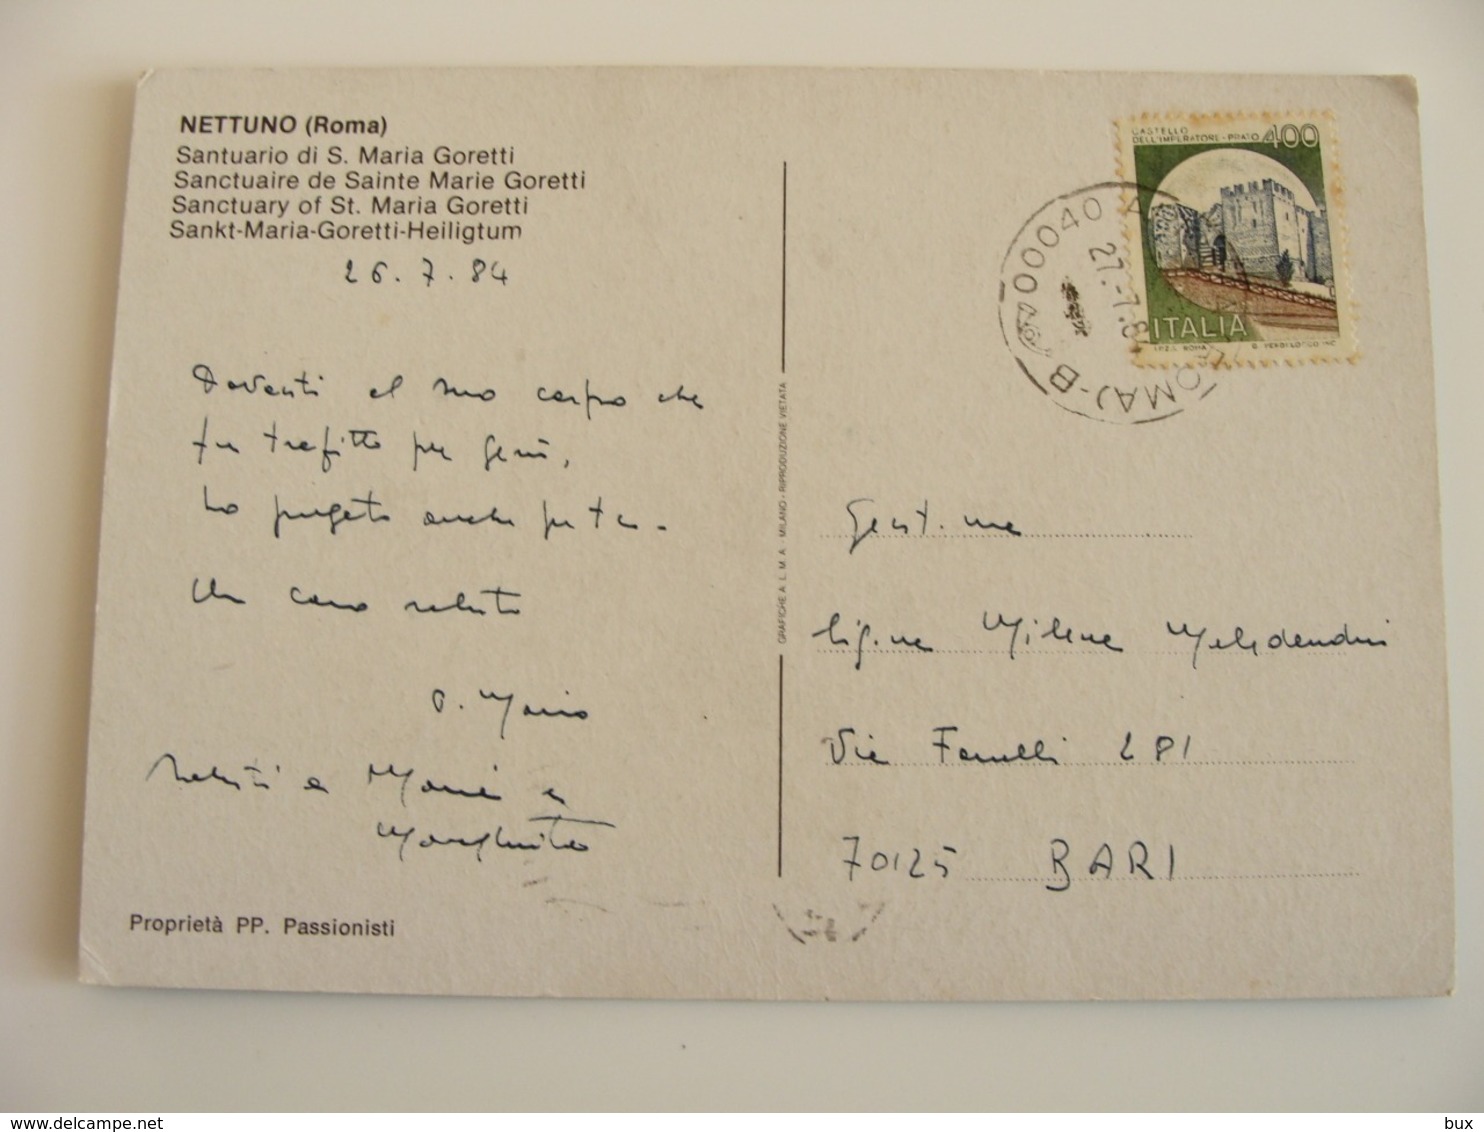 NETTUNO (Roma)
Santuario di S. Maria Goretti
Sanctuaire de Sainte Marie Goretti
Sanctuary of St. Maria Goretti
Sankt-Maria-Goretti-Heiligtum
26.7.84
Davanti al suo corpo che
fu trafitto per Gesù,
ho pregato anche per te.
Un caro saluto
P. Mario
Saluti a Maria e
Margherita
Proprietà PP. Passionisti
GRAFICHE A.L.M.A. MILANO - RIPRODUZIONE VIETATA
CASTELLO
DELL'IMPERATORE - PRATO 400
ITALIA
I.P.Z.S. ROMA
00040
27.-7.8
Gent.ma
Sig.na Milena
Via Fanelli 281
70125 BARI
delcampe.net
bux